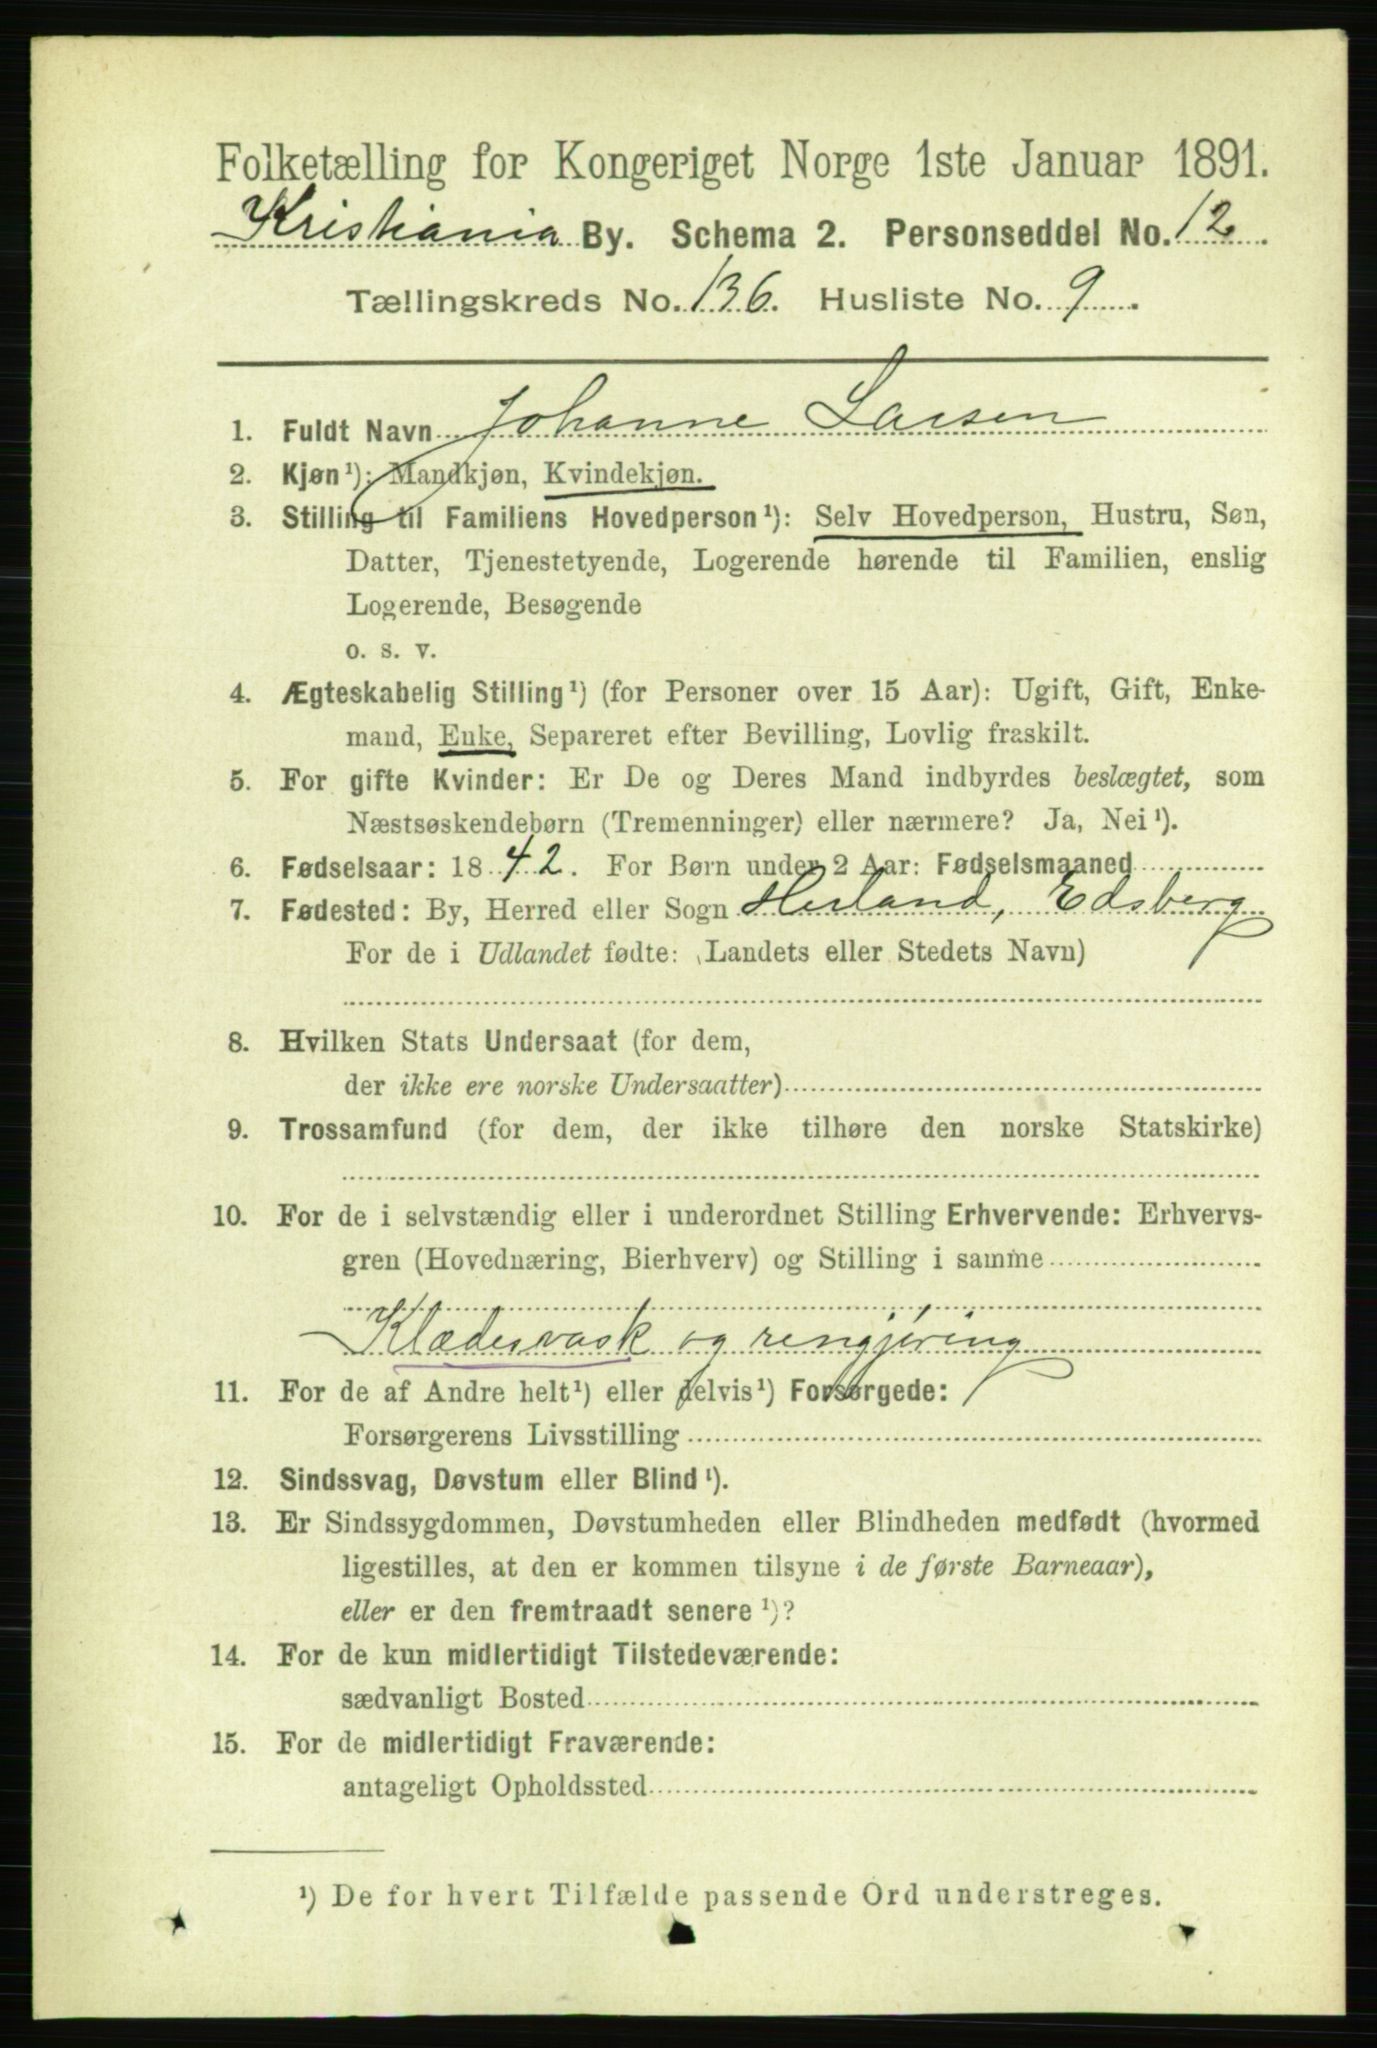 Folketælling for Kongeriget Norge 1ste Januar 1891.
Kristiania By. Schema 2. Personseddel No. 12.
Tællingskreds No. 136. Husliste No. 9.
1. Fuldt Navn Johanne Larsen
2. Kjøn¹): Mandkjøn, Kvindekjøn.
3. Stilling til Familiens Hovedperson¹): Selv Hovedperson, Hustru, Søn,
Datter, Tjenestetyende, Logerende hørende til Familien, enslig
Logerende, Besøgende
o. s. v.
4. Ægteskabelig Stilling¹) (for Personer over 15 Aar): Ugift, Gift, Enke-
mand, Enke, Separeret efter Bevilling, Lovlig fraskilt.
5. For gifte Kvinder: Er De og Deres Mand indbyrdes beslægtet, som
Næstsøskendebørn (Tremenninger) eller nærmere? Ja, Nei¹).
6. Fødselsaar: 1842. For Børn under 2 Aar: Fødselsmaaned
7. Fødested: By, Herred eller Sogn Herland, Edsberg
For de i Udlandet fødte: (Landets eller Stedets Navn)
8. Hvilken Stats Undersaat (for dem,
der ikke ere norske Undersaatter)
9. Trossamfund (for dem, der ikke tilhøre den norske Statskirke)
10. For de i selvstændig eller i underordnet Stilling Erhvervende: Erhvervs-
gren (Hovednæring, Bierhverv) og Stilling i samme
Klædesvask og rengjøring
11. For de af Andre helt¹) eller delvis¹) Forsørgede:
Forsørgerens Livsstilling
12. Sindssvag, Døvstum eller Blind¹).
13. Er Sindssygdommen, Døvstumheden eller Blindheden medfødt (hvormed
ligestilles, at den er kommen tilsyne i de første Barneaar),
eller er den fremtraadt senere¹)?
14. For de kun midlertidigt Tilstedeværende:
sædvanligt Bosted
15. For de midlertidigt Fraværende:
antageligt Opholdssted
¹) De for hvert Tilfælde passende Ord understreges.